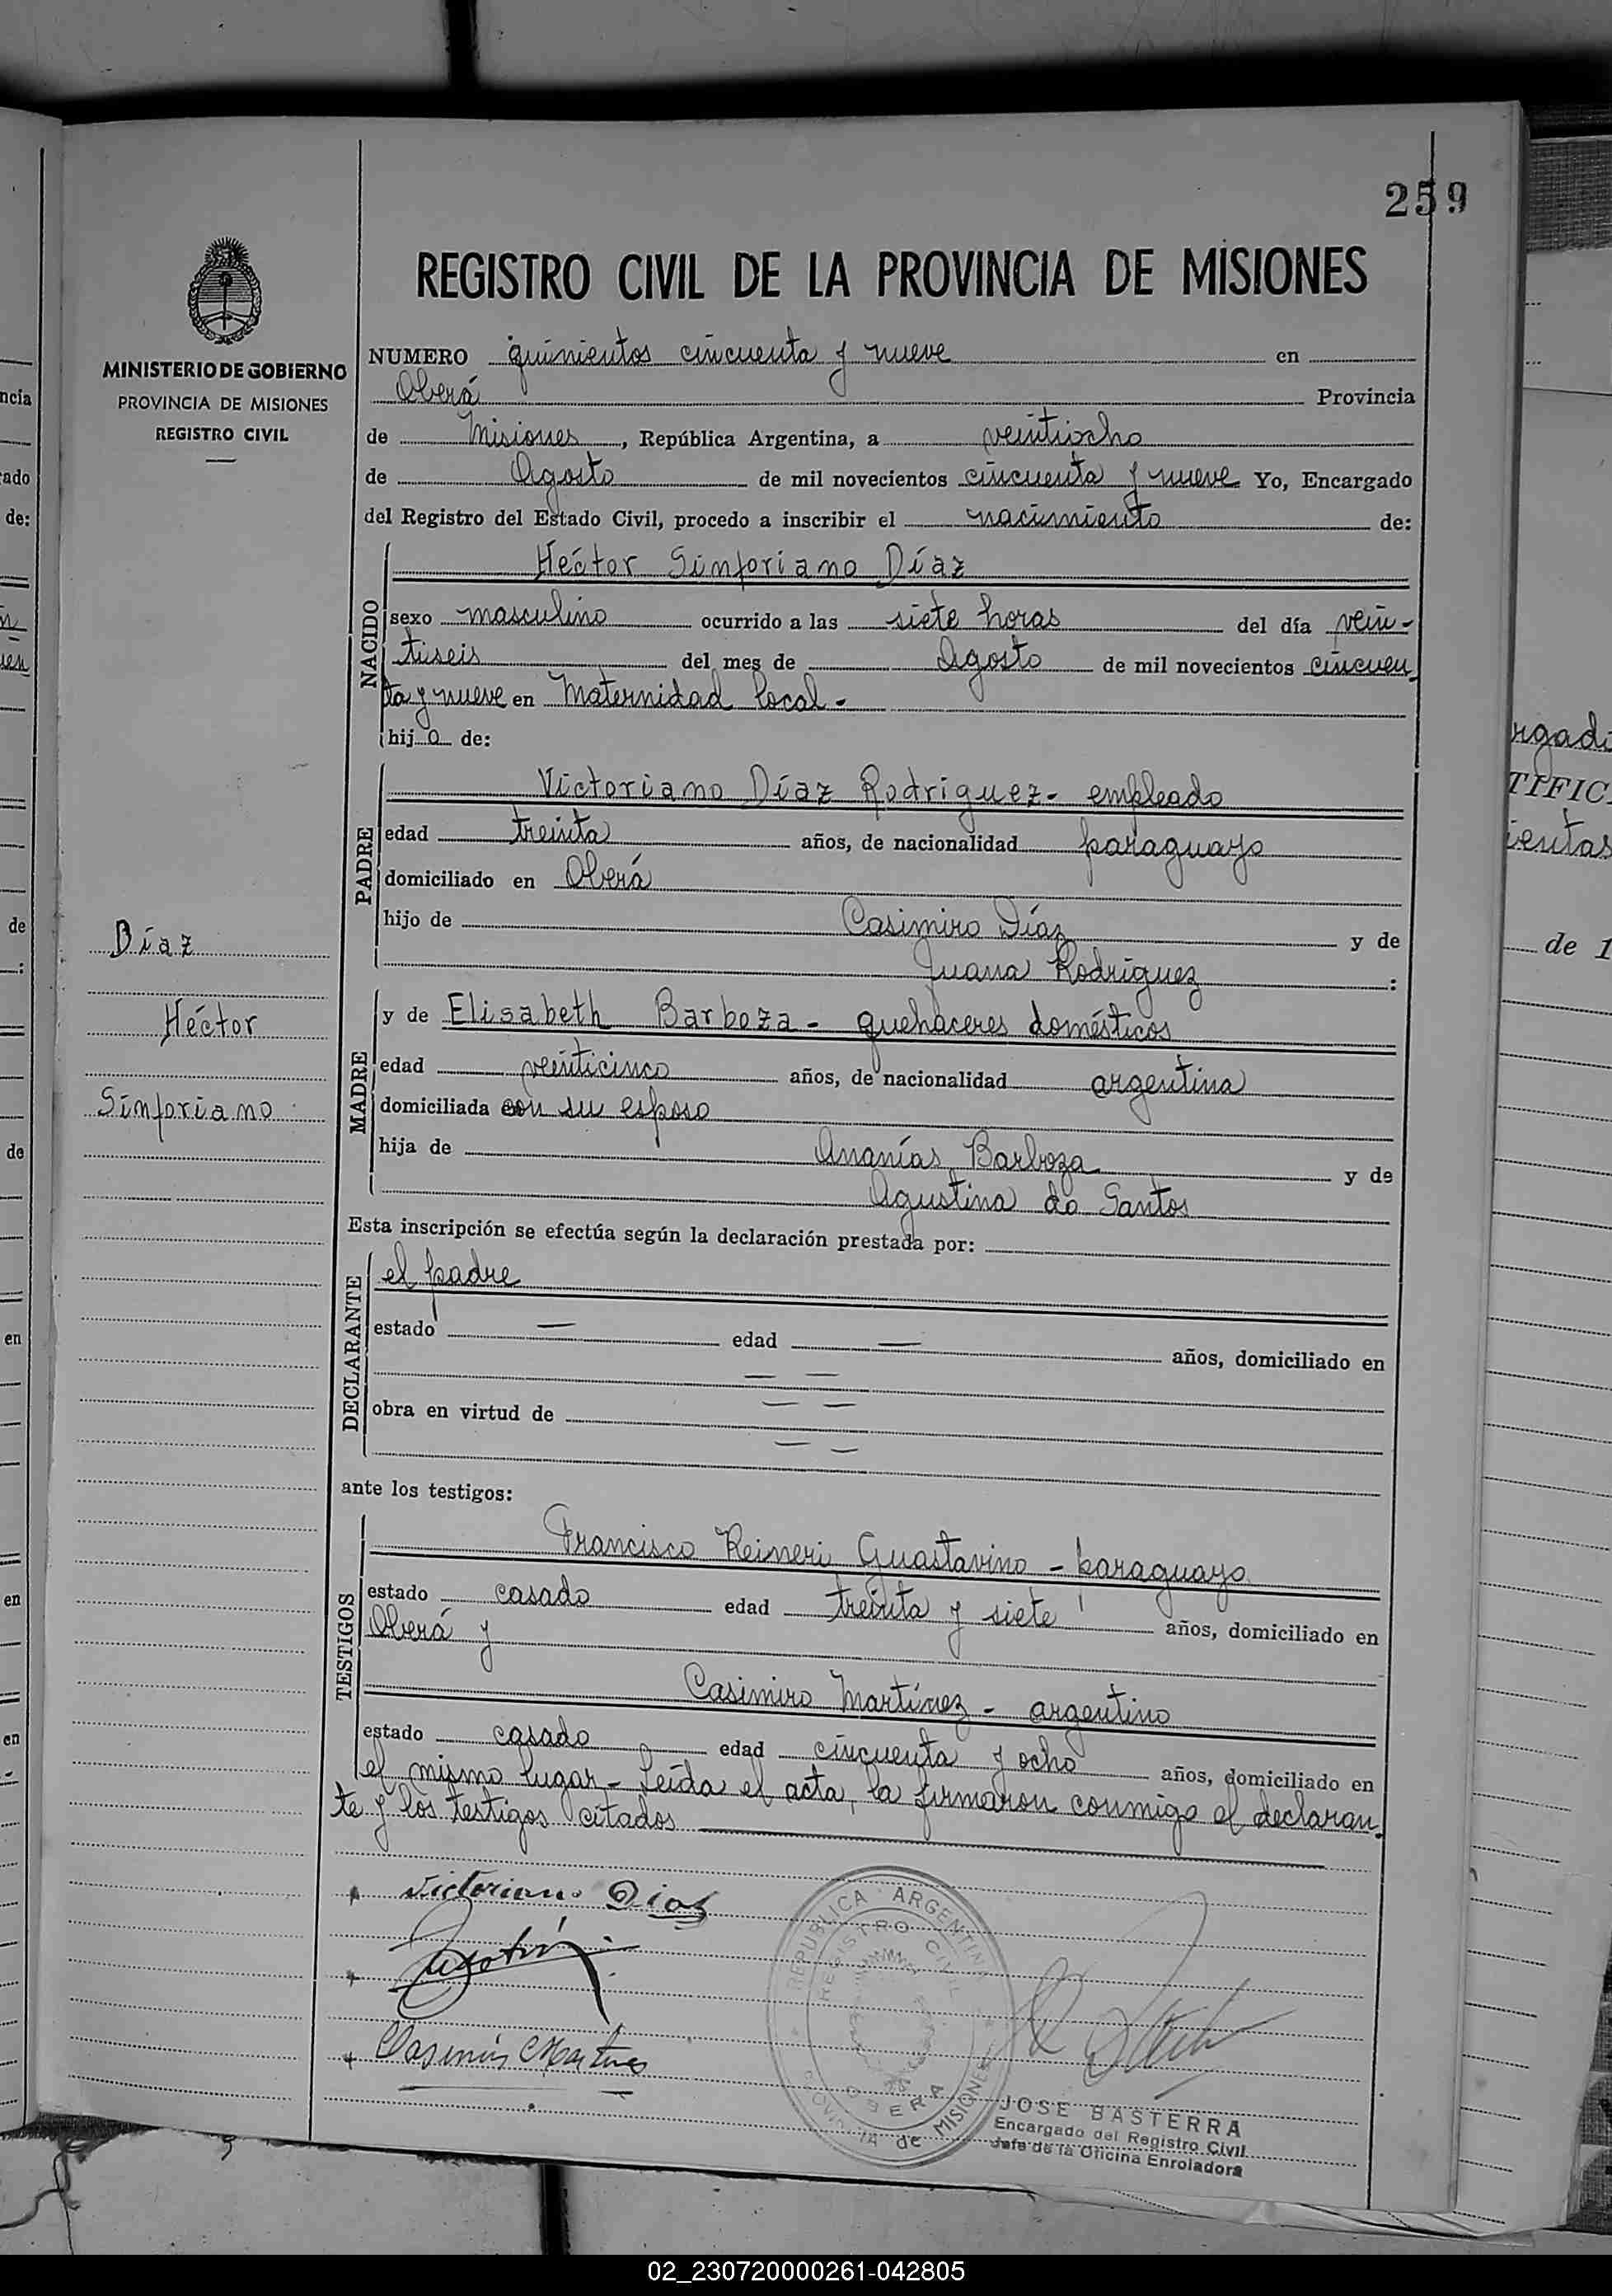 259
MINISTERIO DE GOBIERNO
PROVINCIA DE MISIONES
REGISTRO CIVIL
Díaz
Héctor
Sinforiano
REGISTRO CIVIL DE LA PROVINCIA DE MISIONES
NUMERO quinientos cincuenta y nueve en
Oberá Provincia
de Misiones, República Argentina, a veintiocho
de Agosto de mil novecientos cincuenta y nueve Yo, Encargado
del Registro del Estado Civil, procedo a inscribir el nacimiento de:
NACIDO
Héctor Sinforiano Díaz
sexo masculino ocurrido a las siete horas del día vein-
tiseis del mes de Agosto de mil novecientos cincuen
ta y nueve en Maternidad local.-
hijo de:
PADRE
Victoriano Díaz Rodriguez- empleado
edad treinta años, de nacionalidad paraguayo
domiciliado en Oberá
hijo de Casimiro Díaz y de
Juana Rodriguez :
MADRE
y de Elisabeth Barboza - quehaceres domésticos
edad veinticinco años, de nacionalidad argentina
domiciliada con su esposo
hija de Ananías Barboza y de
Agustina do Santos
Esta inscripción se efectúa según la declaración prestada por:
DECLARANTE
el padre
estado — edad — años, domiciliado en
— —
obra en virtud de — —
— —
ante los testigos:
TESTIGOS
Francisco Reineri Guastavino - paraguayo
estado casado edad treinta y siete años, domiciliado en
Oberá y
Casimiro Martínez - argentino
estado casado edad cincuenta y ocho años, domiciliado en
el mismo lugar - Leída el acta, la firmaron conmigo el declaran
te y los testigos citados
Victoriano Diaz
Casimiro Martines
REPUBLICA ARGENTINA
REGISTRO CIVIL
OBERA
PROVINCIA de MISIONES
JOSE BASTERRA
Encargado del Registro Civil
Jefe de la Oficina Enroladora
02_230720000261-042805